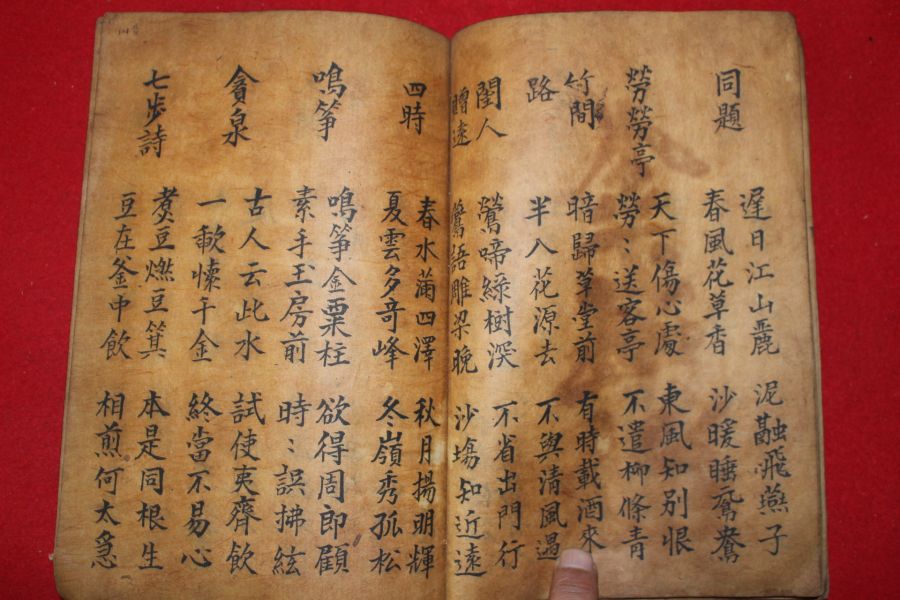 同題
遅日江山麗
春風花草香
泥融飛燕子
沙暖睡鴛鴦
勞勞亭
天下傷心處
勞〻送客亭
東風知別恨
不遣柳條青
竹間
路
暗歸草堂前
半入花源去
有時載酒來
不與清風過
閨人
贈遠
鶯啼綠樹深
鷰語雕梁晚
不省出門行
沙塲知近遠
四時
春水滿四澤
夏雲多奇峰
秋月揚明輝
冬嶺秀孤松
鳴箏
鳴箏金粟柱
素手玉房前
欲得周郎顧
時〻誤拂絃
貪泉
古人云此水
一歃懐千金
試使夷齊飲
終當不易心
七步詩
煮豆燃豆箕
豆在釜中飲
本是同根生
相煎何太急